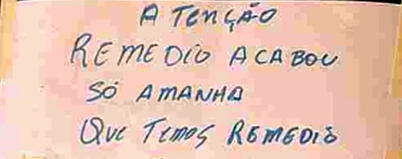 A TENÇÃO
REMEDIO ACABOU
SÓ AMANHA
QUE TEMOS REMEDIO